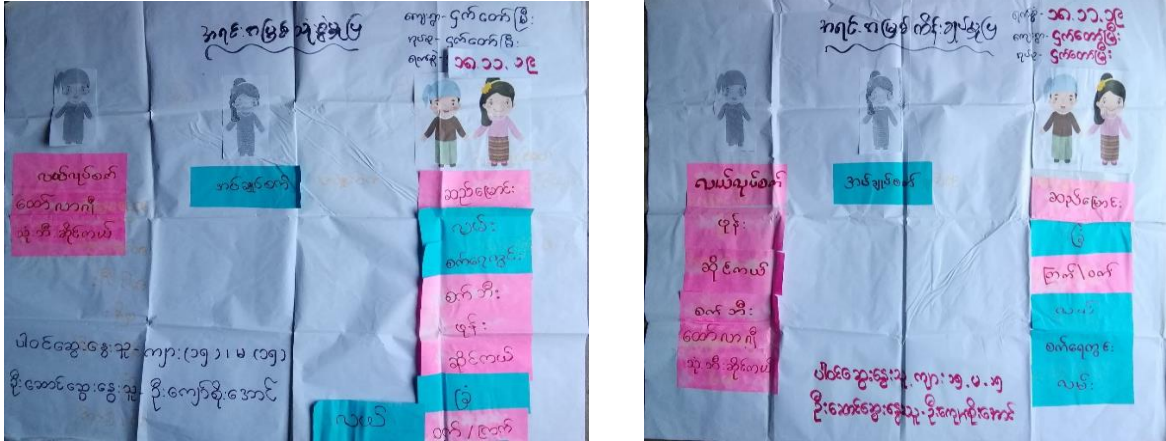 အရင်းအမြစ်သုံးစွဲမှုပြ
ကျေးရွာ- ငှက်တော်မြီး
အုပ်စု- ငှက်တော်မြီး
ရက်စွဲ- ၁၈.၁၁.၁၉
လယ်လုပ်စက်
ထော်လာဂျီ
သုံးဘီးဆိုင်ကယ်
အပ်ချုပ်စက်
ဆည်မြောင်း
လမ်း
စက်ရေတွင်း
စက်ဘီး
ဖုန်း
ဆိုင်ကယ်
ခြံ
ဝက်/ကြက်
လယ်
ပါဝင်ဆွေးနွေးသူ- ကျား(၁၅)၊ မ (၁၅)
ဦးဆောင်ဆွေးနွေးသူ- ဦးကျော်စိုးအောင်
အရင်းအမြစ်ထိန်းချုပ်မှုပြ
ရက်စွဲ- ၁၈.၁၁.၁၉
ကျေးရွာ- ငှက်တော်မြီး
အုပ်စု- ငှက်တော်မြီး
လယ်လုပ်စက်
ဖုန်း
ဆိုင်ကယ်
စက်ဘီး
ထော်လာဂျီ
သုံးဘီးဆိုင်ကယ်
အပ်ချုပ်စက်
ဆည်မြောင်း
ခြံ
ကြက်\ဝက်
လယ်
စက်ရေတွင်း
လမ်း
ပါဝင်ဆွေးနွေးသူ- ကျား ၁၅. မ. ၁၅
ဦးဆောင်ဆွေးနွေးသူ- ဦးကျော်စိုးအောင်